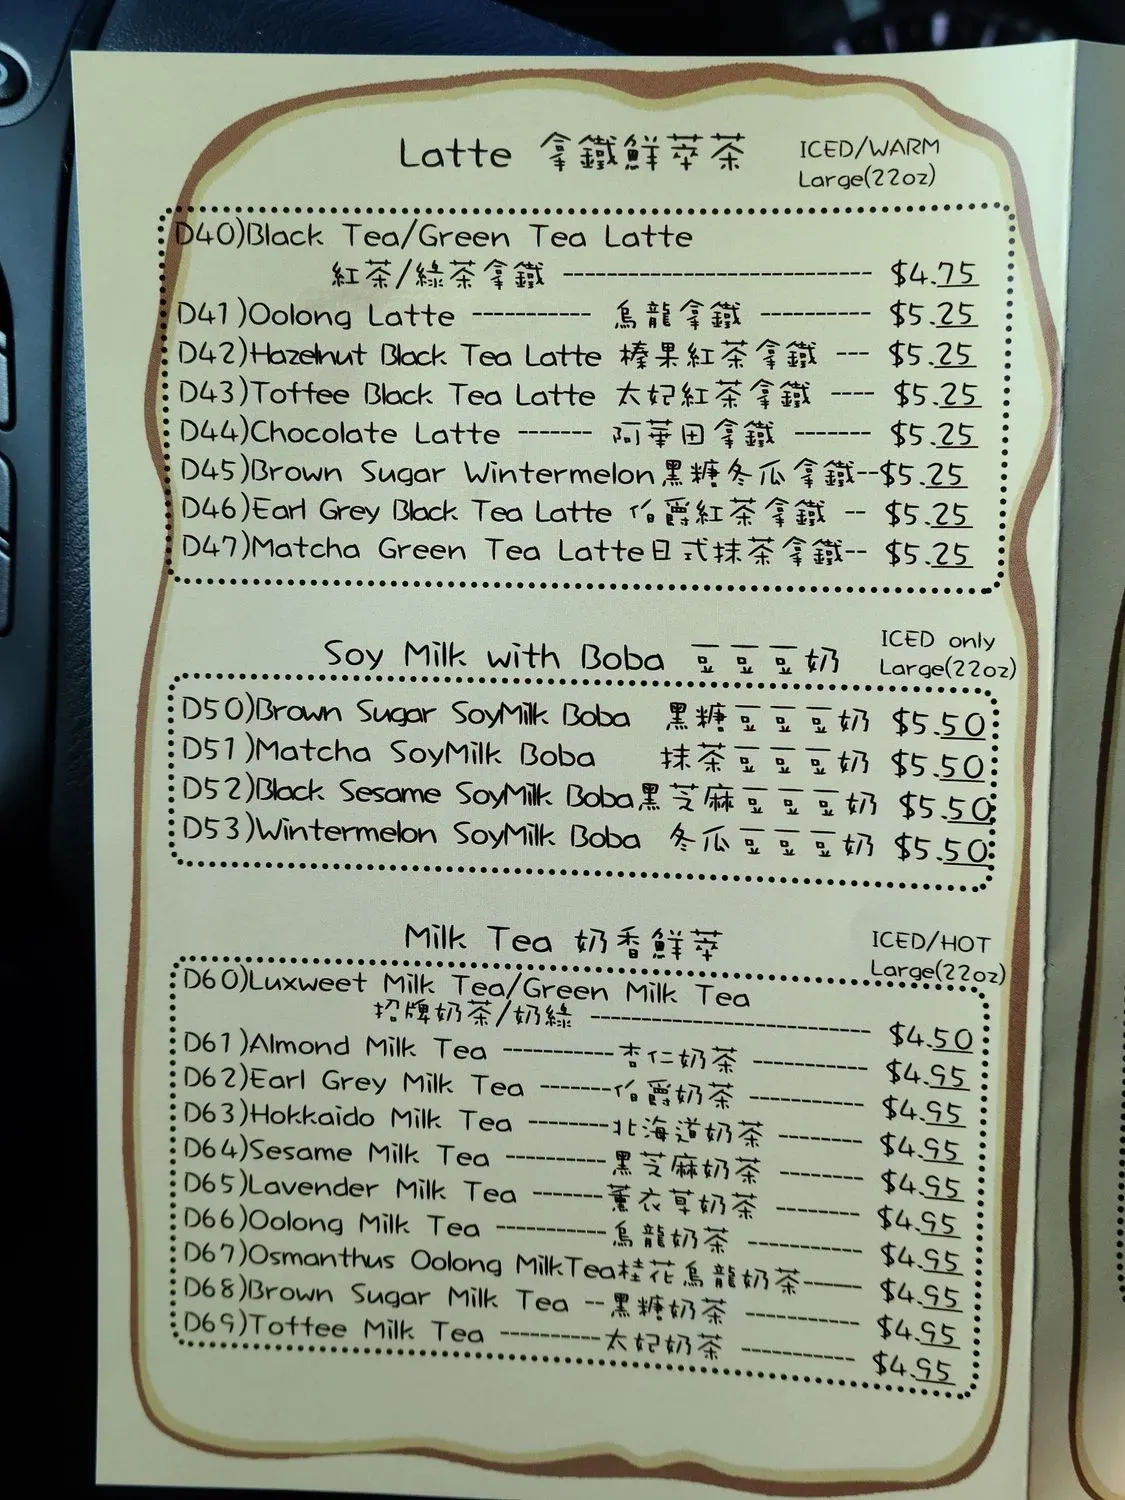 Latte 拿鐵鮮萃茶
ICED/WARM
Large(22oz)
D40)Black Tea/Green Tea Latte
紅茶/綠茶拿鐵 ---------------------------- $4.75
D41)Oolong Latte ----------- 烏龍拿鐵 ---------- $5.25
D42)Hazelnut Black Tea Latte 榛果紅茶拿鐵 --- $5.25
D43)Toffee Black Tea Latte 太妃紅茶拿鐵 ---- $5.25
D44)Chocolate Latte ------- 阿華田拿鐵 ------- $5.25
D45)Brown Sugar Wintermelon黑糖冬瓜拿鐵--$5.25
D46)Earl Grey Black Tea Latte 伯爵紅茶拿鐵 -- $5.25
D47)Matcha Green Tea Latte日式抹茶拿鐵-- $5.25
Soy Milk with Boba 豆豆豆奶
ICED only
Large(22oz)
D50)Brown Sugar SoyMilk Boba 黑糖豆豆豆奶 $5.50
D51)Matcha SoyMilk Boba 抹茶豆豆豆奶 $5.50
D52)Black Sesame SoyMilk Boba黑芝麻豆豆豆奶 $5.50
D53)Wintermelon SoyMilk Boba 冬瓜豆豆豆奶 $5.50
Milk Tea 奶香鮮萃
ICED/HOT
Large(22oz)
D60)Luxweet Milk Tea/Green Milk Tea
招牌奶茶/奶綠 ---------------------------- $4.50
D61)Almond Milk Tea -----------杏仁奶茶 ----------- $4.95
D62)Earl Grey Milk Tea -------伯爵奶茶 ----------- $4.95
D63)Hokkaido Milk Tea ----------北海道奶茶 -------- $4.95
D64)Sesame Milk Tea ----------黑芝麻奶茶 -------- $4.95
D65)Lavender Milk Tea -------薰衣草奶茶 -------- $4.95
D66)Oolong Milk Tea -----------烏龍奶茶 ----------- $4.95
D67)Osmanthus Oolong MilkTea桂花烏龍奶茶------ $4.95
D68)Brown Sugar Milk Tea --黑糖奶茶 ----------- $4.95
D69)Toffee Milk Tea ----------太妃奶茶 ----------- $4.95